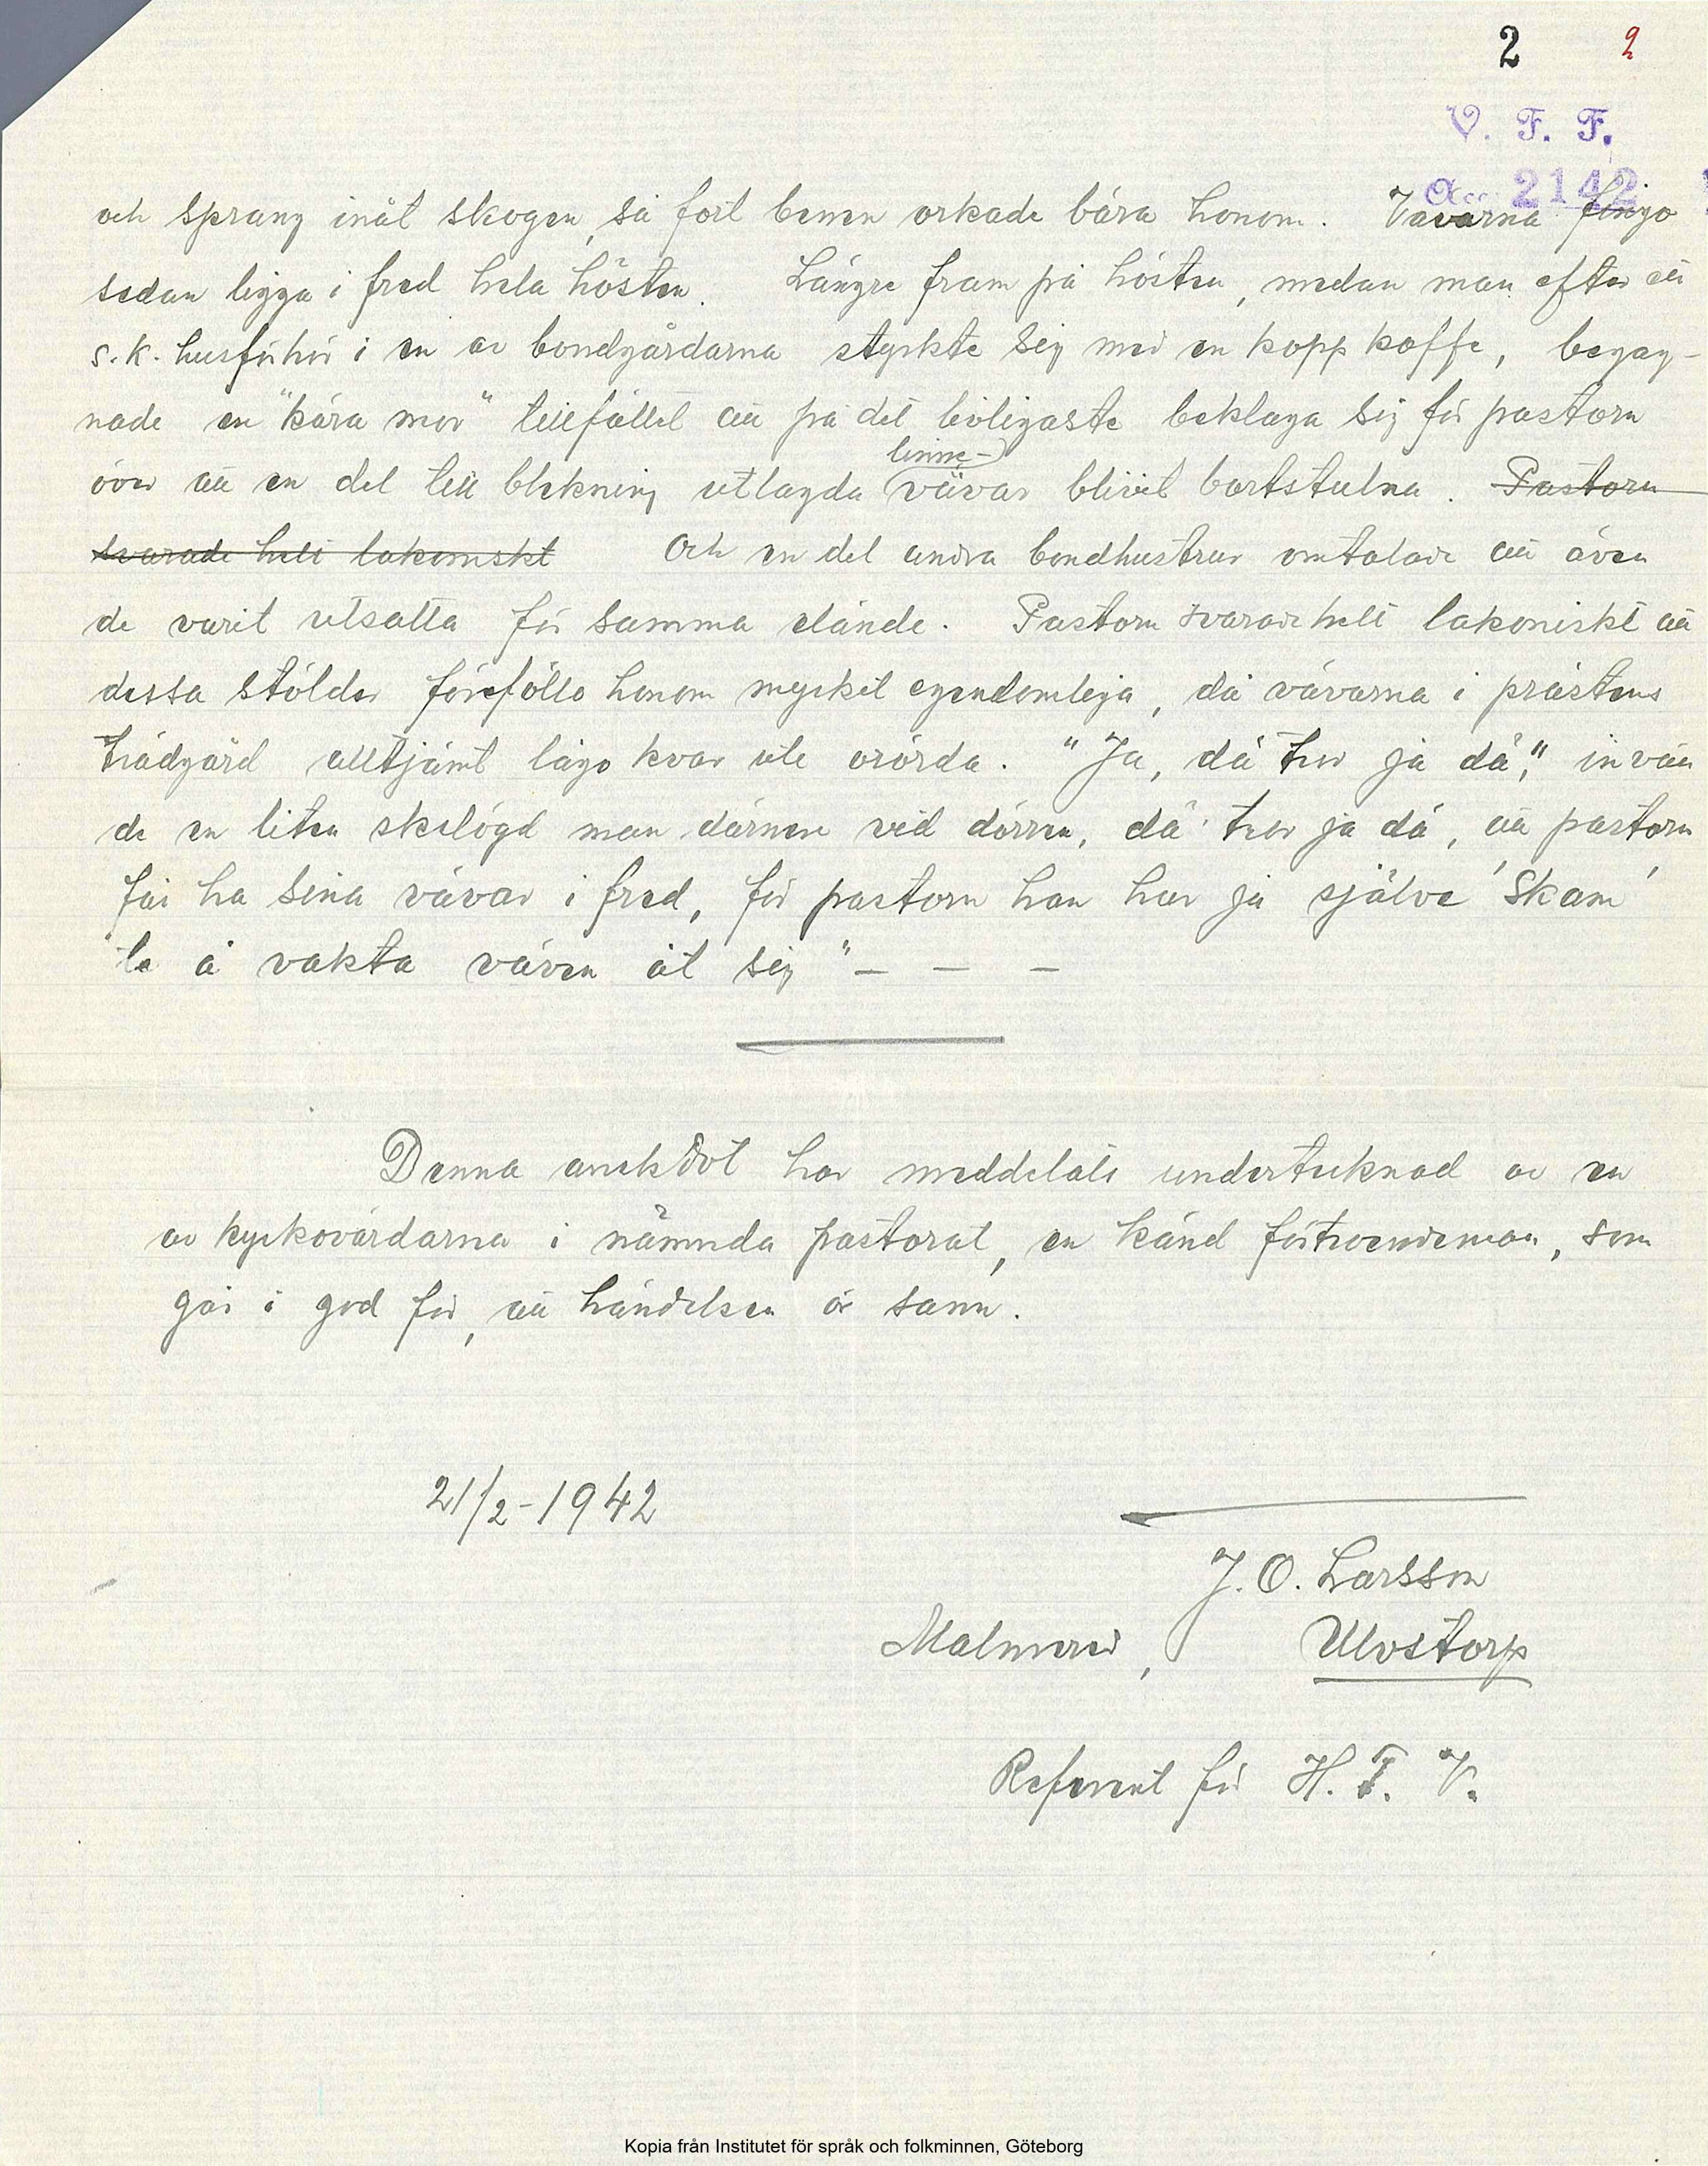 2 2
V. F. F.
Acc. 2142
och sprang inåt skogen, så fort benen orkade bära honom. Vävarna fingo
sedan ligga i fred hela hösten. Längre fram på hösten, medan man efter ett
s.k. husförhör i en av bondgårdarna styrkte sig med en kopp kaffe, begag-
nade en "kära mor" tillfället att på det livligaste beklaga sig för pastorn
linne-
över att en del till blekning utlagda vävar blivit bortstulna. Pastorn
svarade helt lakoniskt Och en del andra bondhustrur omtalade att även
de varit utsatta för samma elände. Pastorn svarade helt lakoniskt att
dessa stölder föreföllo honom mycket egendomliga, då vävarna i prästens
trädgård alltjämt lågo kvar ute orörda. "Ja, dä' tror ja dä", invän
de en liten skelögd man därnere vid dörren, dä' tror ja dä, att pastorn
får ha sina vävar i fred, för pastorn han har ju själve 'Skam'
te å vakta väven åt sig" — — —
Denna anekdot har meddelats undertecknad av en
av kyrkovärdarna i nämnda pastorat, en känd förtroendeman, som
går i god för, att händelsen är sann.
21/2-1942
J. O. Larsson
Malmered, Ulvstorp
Referent för H. F. V.
Kopia från Institutet för språk och folkminnen, Göteborg